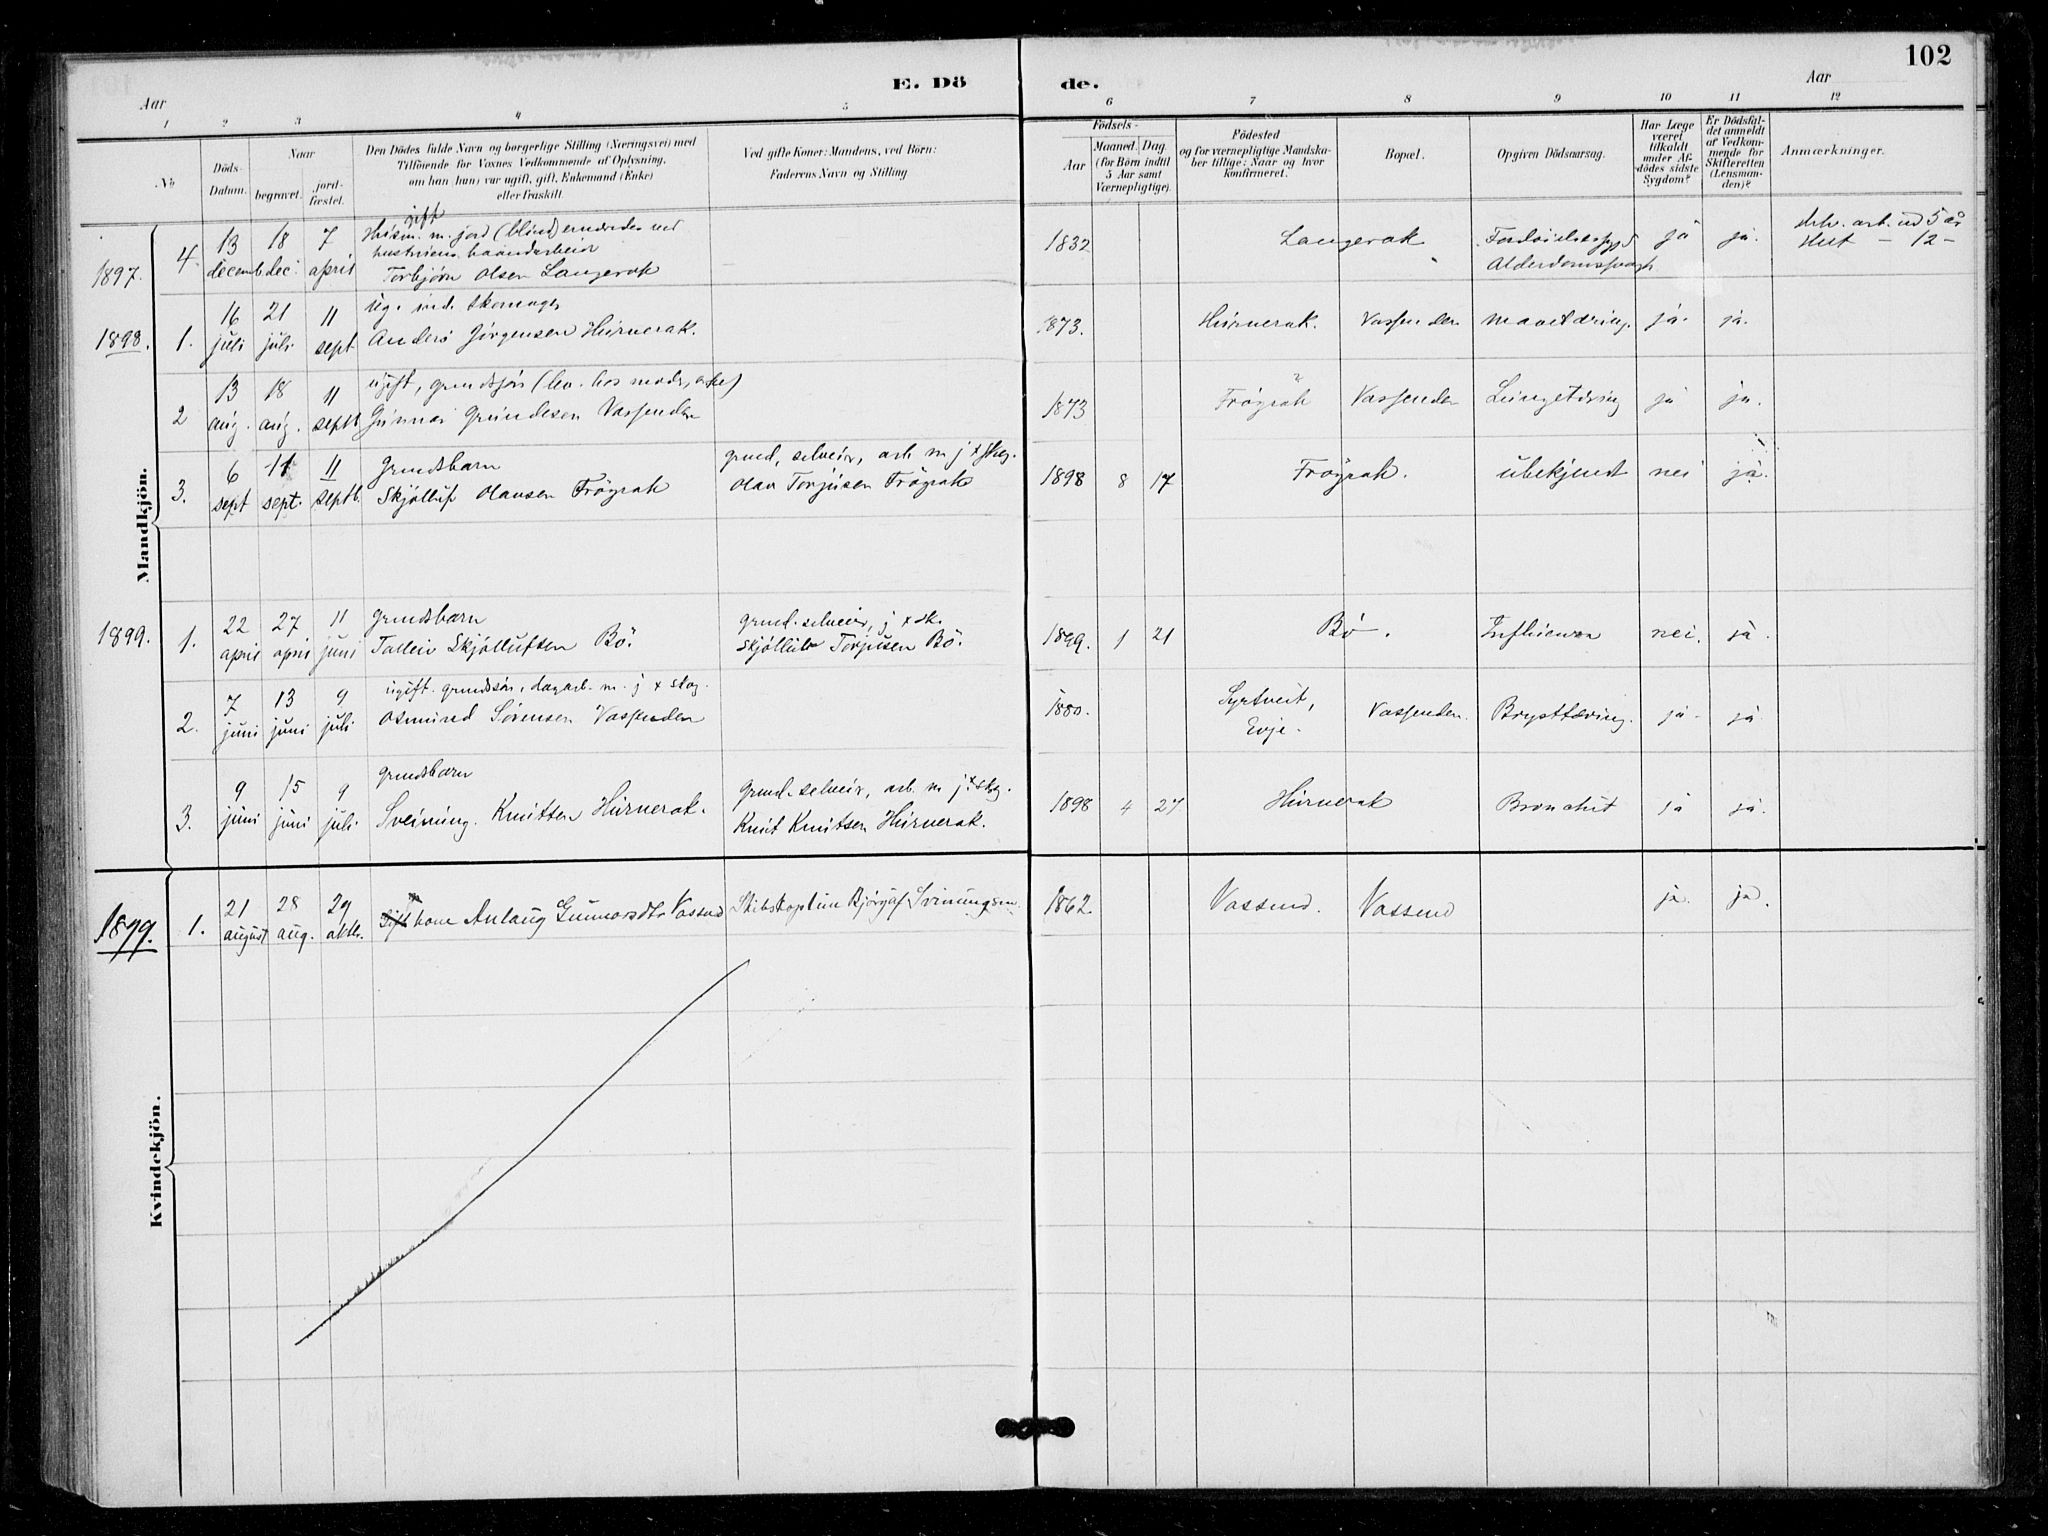 102
E. Dö de.
Aar Aar
1 2 3 4 5 6 7 8 9 10 11 12
No
Döds-Datum.
Naar
begravet.
jord-fæstet.
Den Dödes fulde Navn og borgerlige Stilling (Næringsvei) med
Tilföiende for Voxnes Vedkommende af Oplysning,
om han (hun) var ugift, gift, Enkemand (Enke)
eller fraskilt.
Ved gifte Koner: Mandens, ved Börn:
Faderens Navn og Stilling
Födsels-
Aar
Maaned. Dag.
(for Börn indtil
5 Aar samt
Værnepligtige).
Födested
og for værnepligtige Mandska-
ber tillige: Naar og hvor
konfirmeret.
Bopæl.
Opgiven Dödsaarsag.
Har Læge
været
tilkaldt
under Af-
dödes sidste
Sygdom?
Er Dödsfal-
det anmeldt
af Vedkom-
mende for
Skifteretten
(Lensman-
den)?
Anmærkninger.
Mandkjön.
1897. 4 13 decemb. 18 dec. 7 april
gift
Husm. m. jord (blind) ernæredes ved
hustruens haandarbeide
Torbjörn Olsen Langerak
1832 Langerak
Alderdomssvagh
ja ja.
arb. ud 5 år
Hist - 12 -
1898. 1. 16 juli 21 juli 11 sept
ug. ind. Skomager
Anders Jörgensen Hurnerak.
1873. Hurnerak. Vassenden mavetæring. ja. ja.
2 13 aug. 18 aug. 11 septb
ugift, grundsön
Gunnar Gundesen Vassenden
1873 Frögrak Vassenden Lungetæring ja ja.
3. 6 sept 11 sept. 11 septb.
grundsbarn
Skjölluf Olausen Frögrak
grund, selveier, arb. m j + skog.
Olav Torjusen Frögrak
1898 8 17 Frögrak. ubekjendt nei ja.
1899. 1. 22 april 27 april 11 juni
grundsbarn
Talleiv Skjöllufsen Bö.
grund. selveier, j + sk.
Skjölluv Torjusen Bö.
1899. 1 21 Bö. Influenza nei. ja.
2. 7 juni 13 juni 9 juli
ugift. grundssön, dagarb. m. j + skog.
Osmund Sörensen Vassenden
1880. Syrtveit,
Evje. Vassenden. Brysttæring. ja. ja.
3. 9 juni 15 juni 9 juli
grundsbarn
Sveinung. Knutsen Hurnerak.
grund. selveier, arb. m j + skog.
Knut Knutsen Hurnerak.
1898 4 27 Hurnerak Bronchit ja ja.
Kvindekjön.
1899. 1. 21 august 28 aug. 29 oktbr.
Gift kone Anlaug Gunnarsdtr Vassend
Skibskaptein Björguf Sveinungsen.
1862. Vassend. Vassend ja. ja.